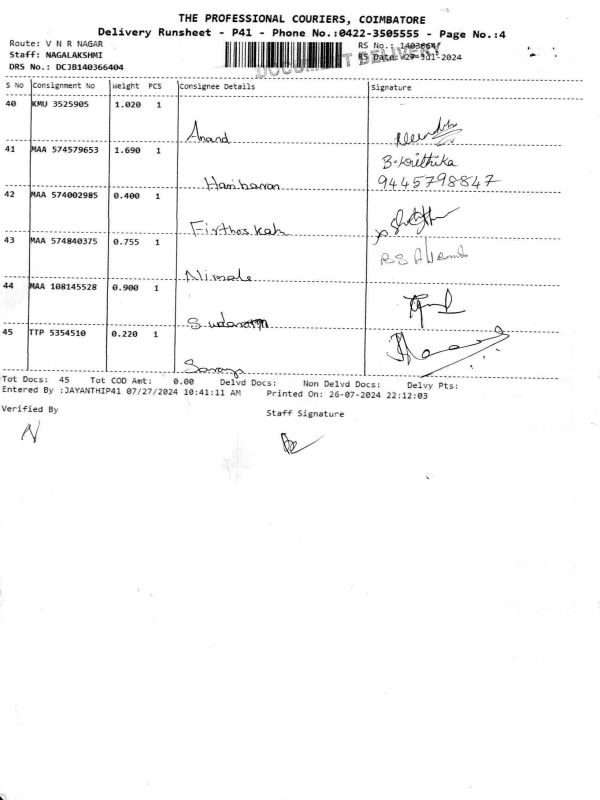 THE PROFESSIONAL COURIERS, COIMBATORE
Delivery Runsheet - P41 - Phone No.:0422-3505555 - Page No.:4
Route: V N R NAGAR
Staff: NAGALAKSHMI
DRS No.: DCJB140366404
RS No.: 1403664
RS Date: 27-Jul-2024
DOCUMENT DELIVERY
S No Consignment No Weight PCS Consignee Details Signature
40 KMU 3525905 1.020 1
Anand
41 MAA 574579653 1.690 1 B. Krithika
Hariharan 9445798847
42 MAA 574002985 0.400 1
Firthos Kah
43 MAA 574840375 0.755 1
Nirmala
44 MAA 108145528 0.900 1
45 TTP 5354510 0.220 1
Tot Docs: 45 Tot COD Amt: 0.00 Delvd Docs: Non Delvd Docs: Delvy Pts:
Entered By :JAYANTHIP41 07/27/2024 10:41:11 AM Printed On: 26-07-2024 22:12:03
Verified By
Staff Signature